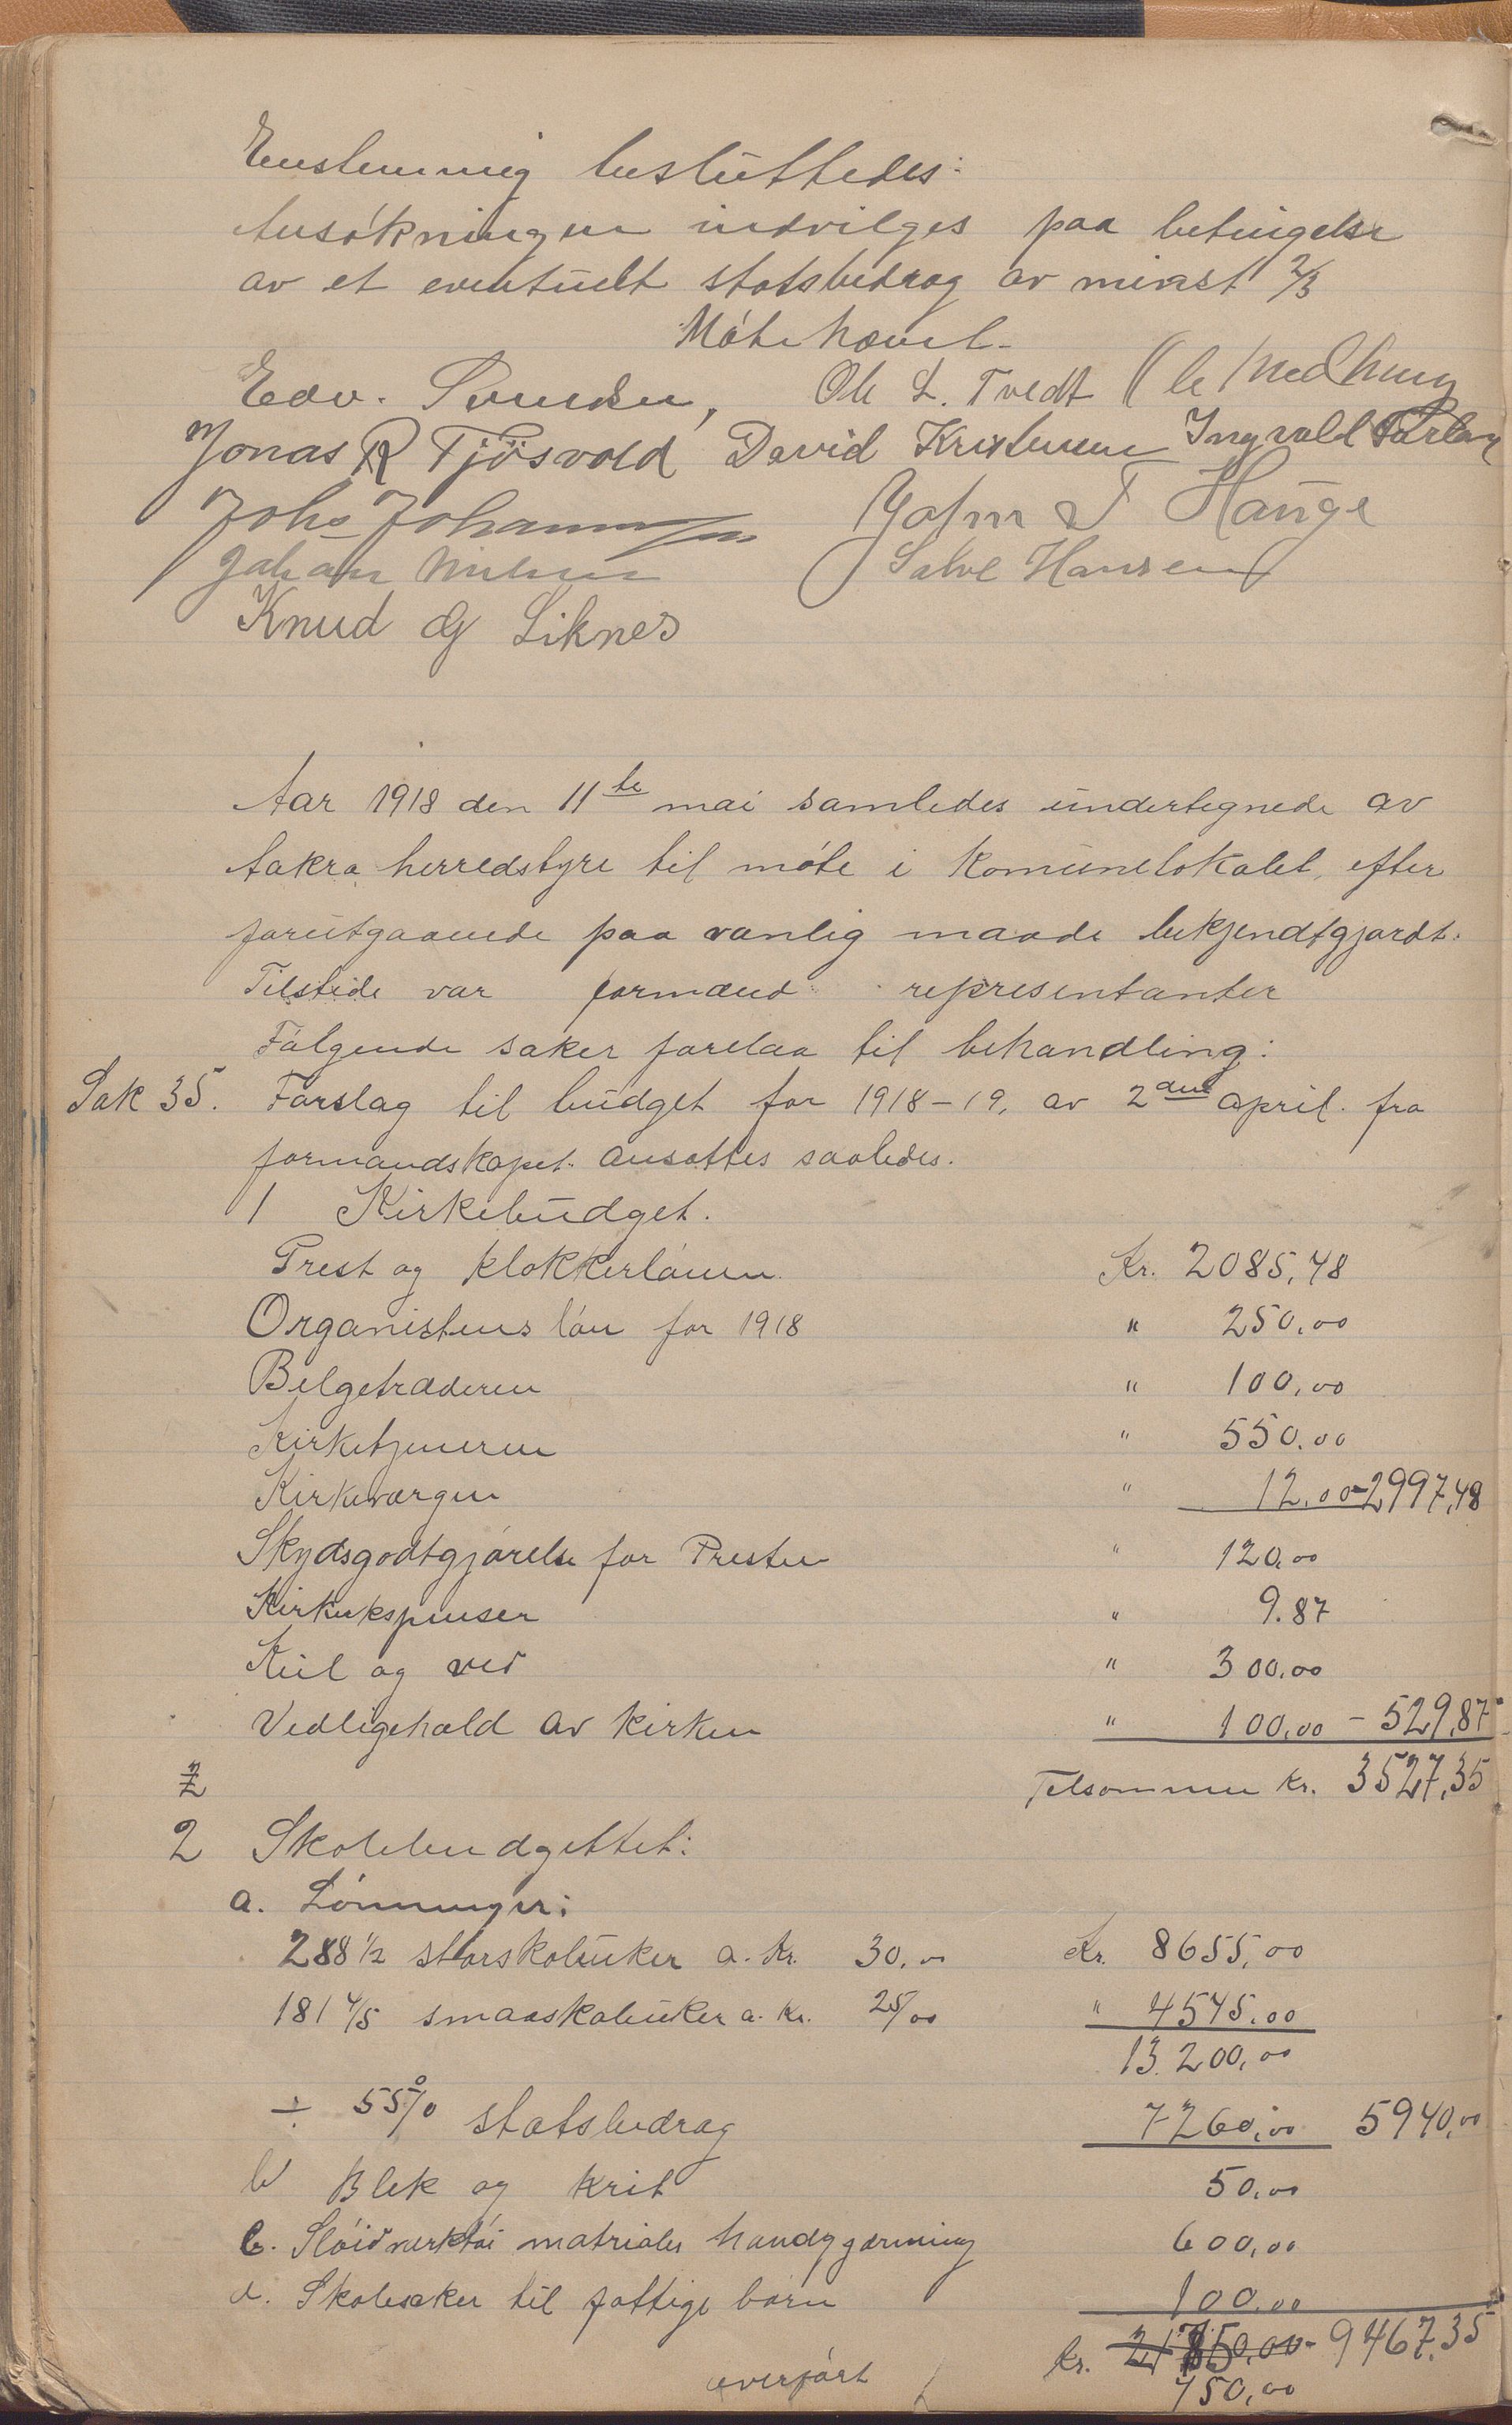 Enstemmig besluttedes:
Ansökningen indvilges paa betingelse
av et eventuelt statsbidrag av minst 2/3
Möte hævet.
Edv. Svendsen, Ole L. Tvedt Ole Medhaug
Jonas R Tjösvold David Kristensen Ingvald Færlan
Johs Johannessen John T Hauge
Johan Nilsen Salve Hansen
Knud G Liknes
Aar 1918 den 11te mai samledes undertegnede av
Aakra herredstyre til möte i Komunelokalet, efter
forutgaaende paa vanlig maade bekjendtgjördt.
Tilstede var formænd representanter
Fölgende saker forelaa til behandling:
Sak 35. Forslag til budget for 1918-19, av 2den april. fra
formandskapet. Ansattes saaledes.
1 Kirkebudget.
Prest og klokkerlönn Kr. 2085,48
Organistens lön for 1918 " 250,00
Belgetræderen " 100,00
Kirketjeneren " 550.00
Kirkeværgen " 12.00-2997,48
Skydsgodtgjörelse for Presten " 120,00
Kirkeekspenser " 9.87
Kul og ved " 300,00
Vedligehold av kirken " 100,00 - 529,87
2 Tilsammen kr. 3527,35
2 Skolebudgettet:
a. Lönninger:
288 1/2 storskoleuker a. Kr. 30,00 Kr. 8655,00
181 4/5 smaaskoleuker a. Kr. 25/00 " 4545,00
13.200,00
÷ 55% statsbidrag 7260,00 5940,00
b Blek og krit 50,00
c. Slöidverktöi matrialer handgjerning 600,00
d. Skolesaker til fattige börn 100,00
Kr. 9467,35
overfört 750,00